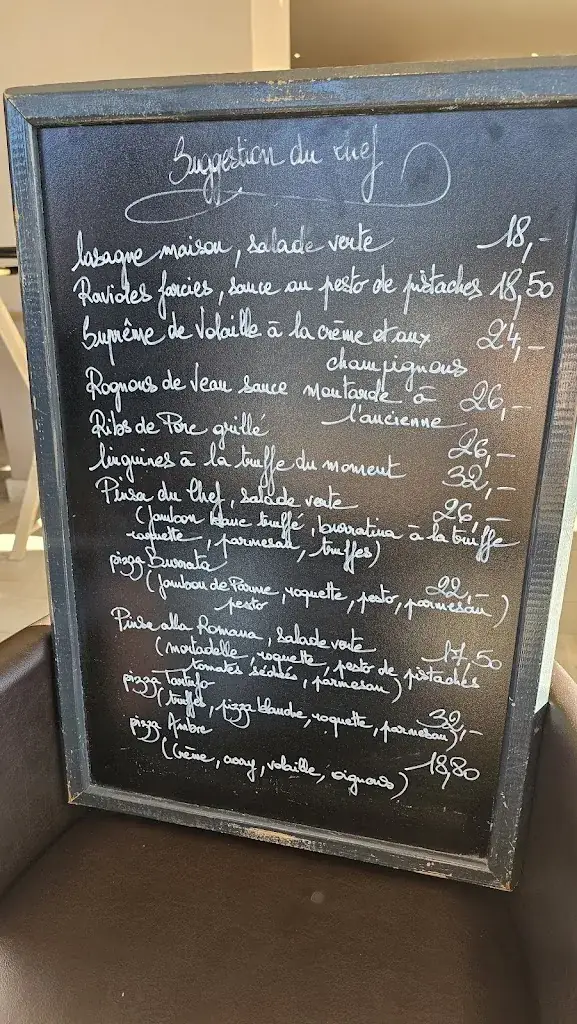 Suggestion du chef
lasagne maison, salade verte 18,-
Ravioles farcies, sauce au pesto de pistaches 18,50
Suprême de Volaille à la crème et aux 24,-
champignons
Rognons de Veau sauce moutarde à 26,-
l'ancienne
Ribs de Porc grillé 26,-
linguines à la truffe du moment 32,-
Pinsa du Chef, salade verte 26,-
(Jambon blanc truffé, burratina à la truffe
roquette, parmesan, truffes)
pizza Burrata 22,-
(Jambon de Parme, roquette, pesto, parmesan)
pesto
Pinse alla Romana, salade verte 17,50
(mortadelle, roquette, pesto de pistaches
tomates séchées, parmesan)
pizza Tartufo 32,-
(truffes, pizza blanche, roquette, parmesan)
pizza Ambre 18,80
(Crème, curry, volaille, oignons)